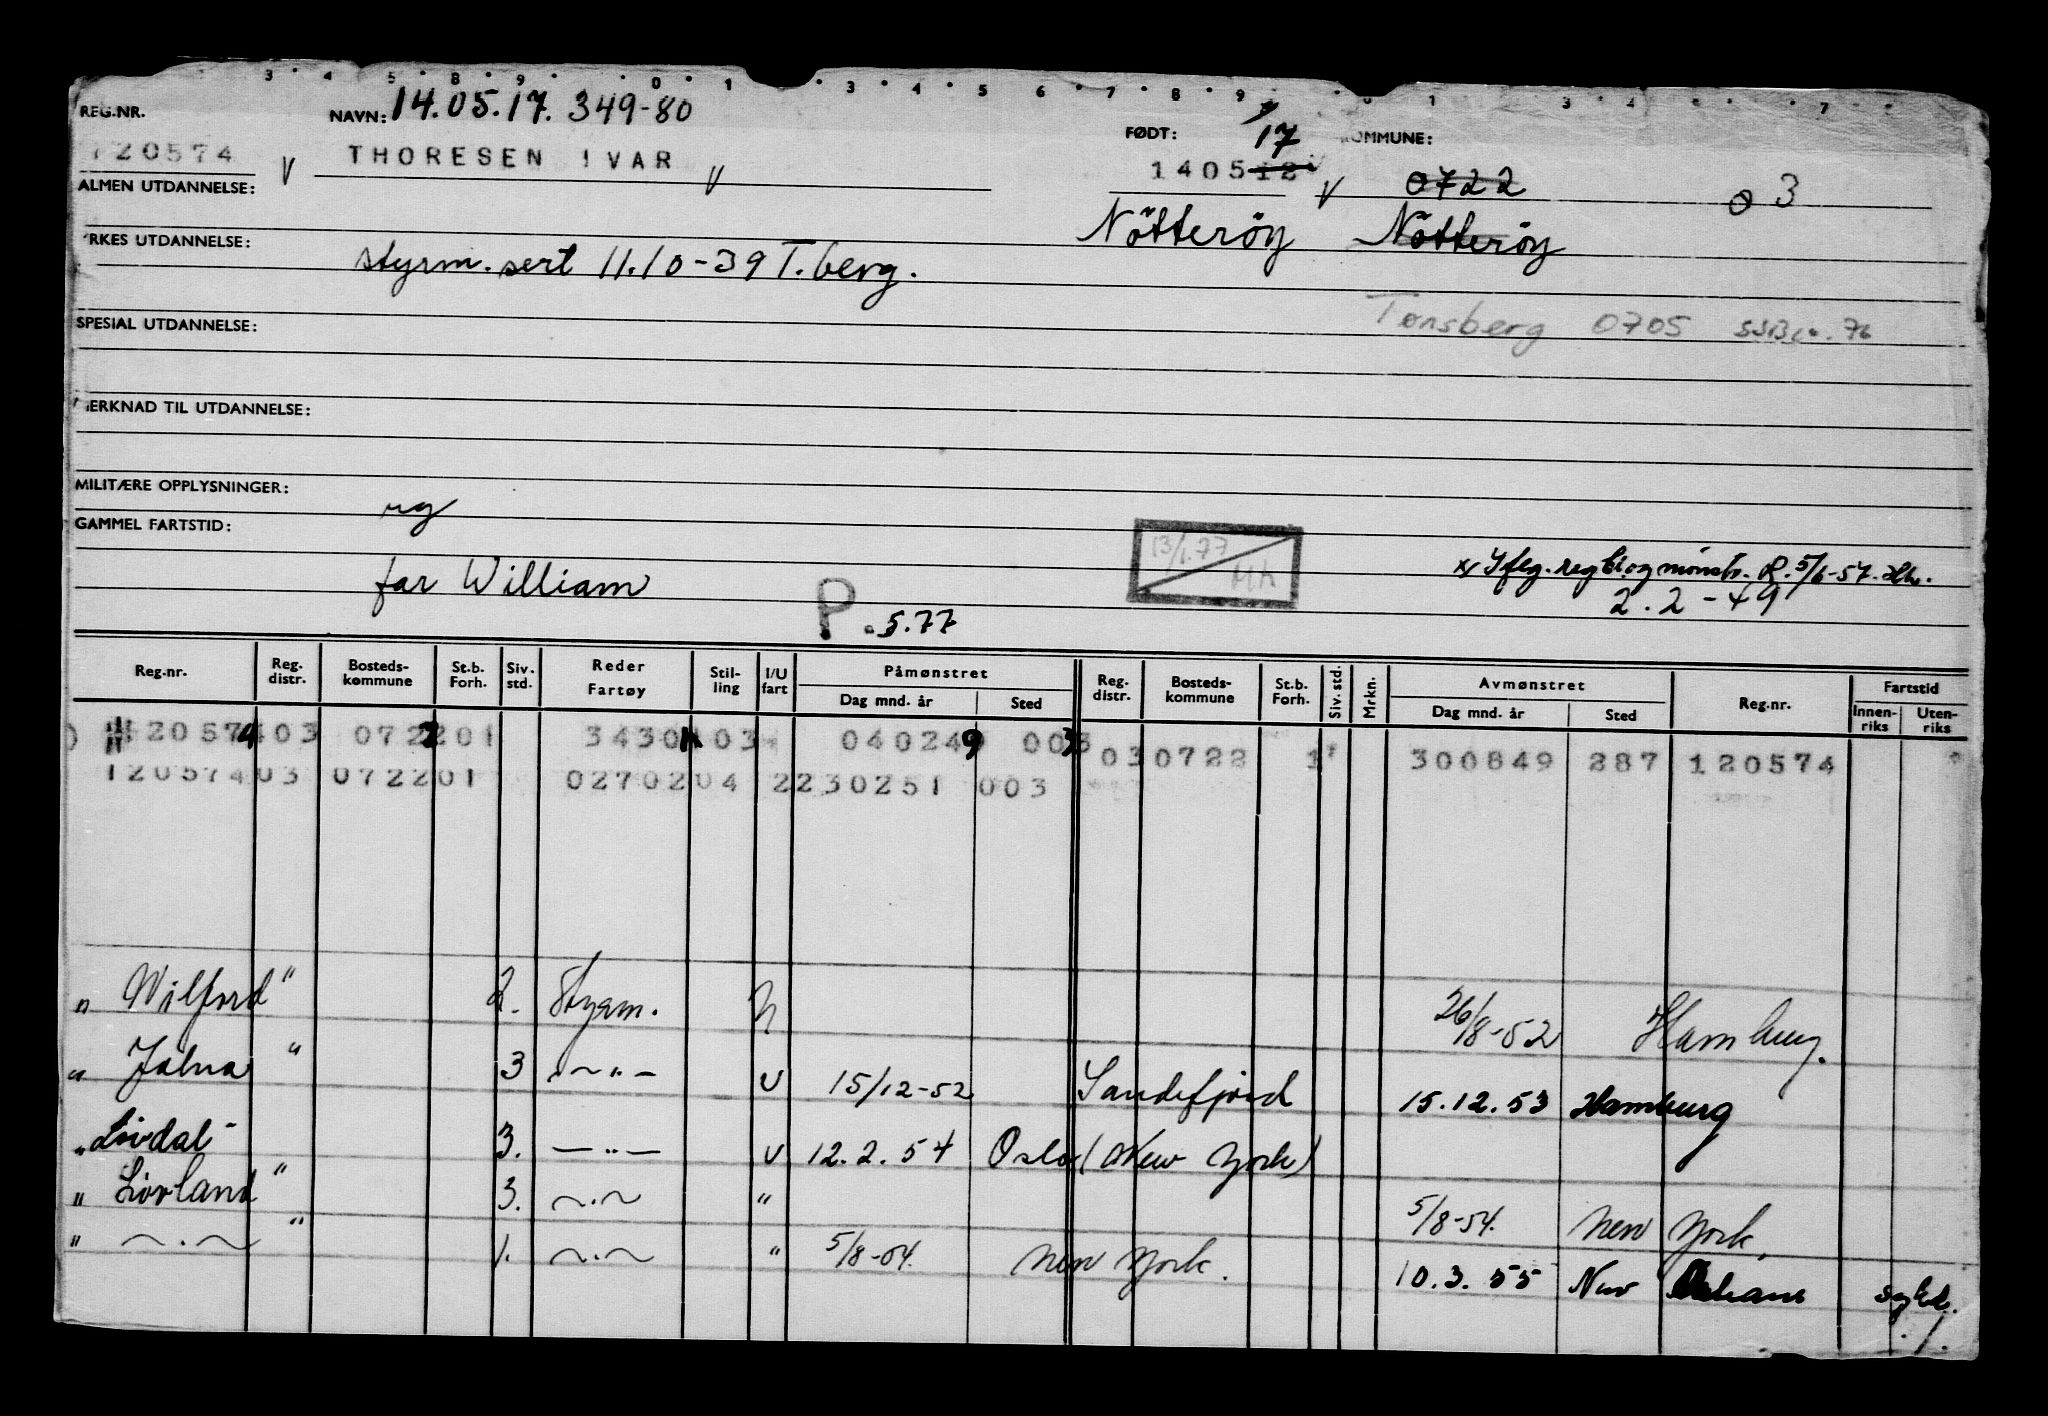 REG.NR. NAVN: 14.05.17. 349-80 FØDT: 17 KOMMUNE:
120574 V THORESEN IVAR V 140512 V 0722 03
ALMEN UTDANNELSE:
Nötteröy Nötteröy
YRKES UTDANNELSE: styrm. sert 11.10-39 T.berg.
Tønsberg 0705
SPESIAL UTDANNELSE:
MERKNAD TIL UTDANNELSE:
MILITÆRE OPPLYSNINGER: ug
GAMMEL FARTSTID:
13/1.77
far William
P. 5.77
x, Iflg. regbl og mønstr. R. 5/6-57.
2.2-49
Reg.nr. Reg. distr. Bosteds-kommune St.b. Forh. Siv. std. Reder Fartøy Stil-ling I/U fart Påmønstret Dag mnd. år Sted Reg. distr. Bosteds-kommune St.b. Forh. Siv. std. Mrkn. Avmønstret Dag mnd. år Sted Reg.nr. Fartstid Innen-riks Uten-riks
120574 03 0722 01 3430 03 040249 003 03 0722 1 300849 287 120574
120574 03 0722 01 02702 04 2 230251 003
" Wilford " 2. Styrm. 26/8-52 Hamburg.
" Jalna " 3 -"- U 15/12-52 Sandefjord 15.12.53 Hamburg
" Lovdal " 3. -"- U 12.2.54 Oslo (New York)
" Lovland " 3. -"- " 5/8-54. New York.
" -"- " 1. -"- " 5/8-54. New York. 10.3.55 New Orleans sykd.